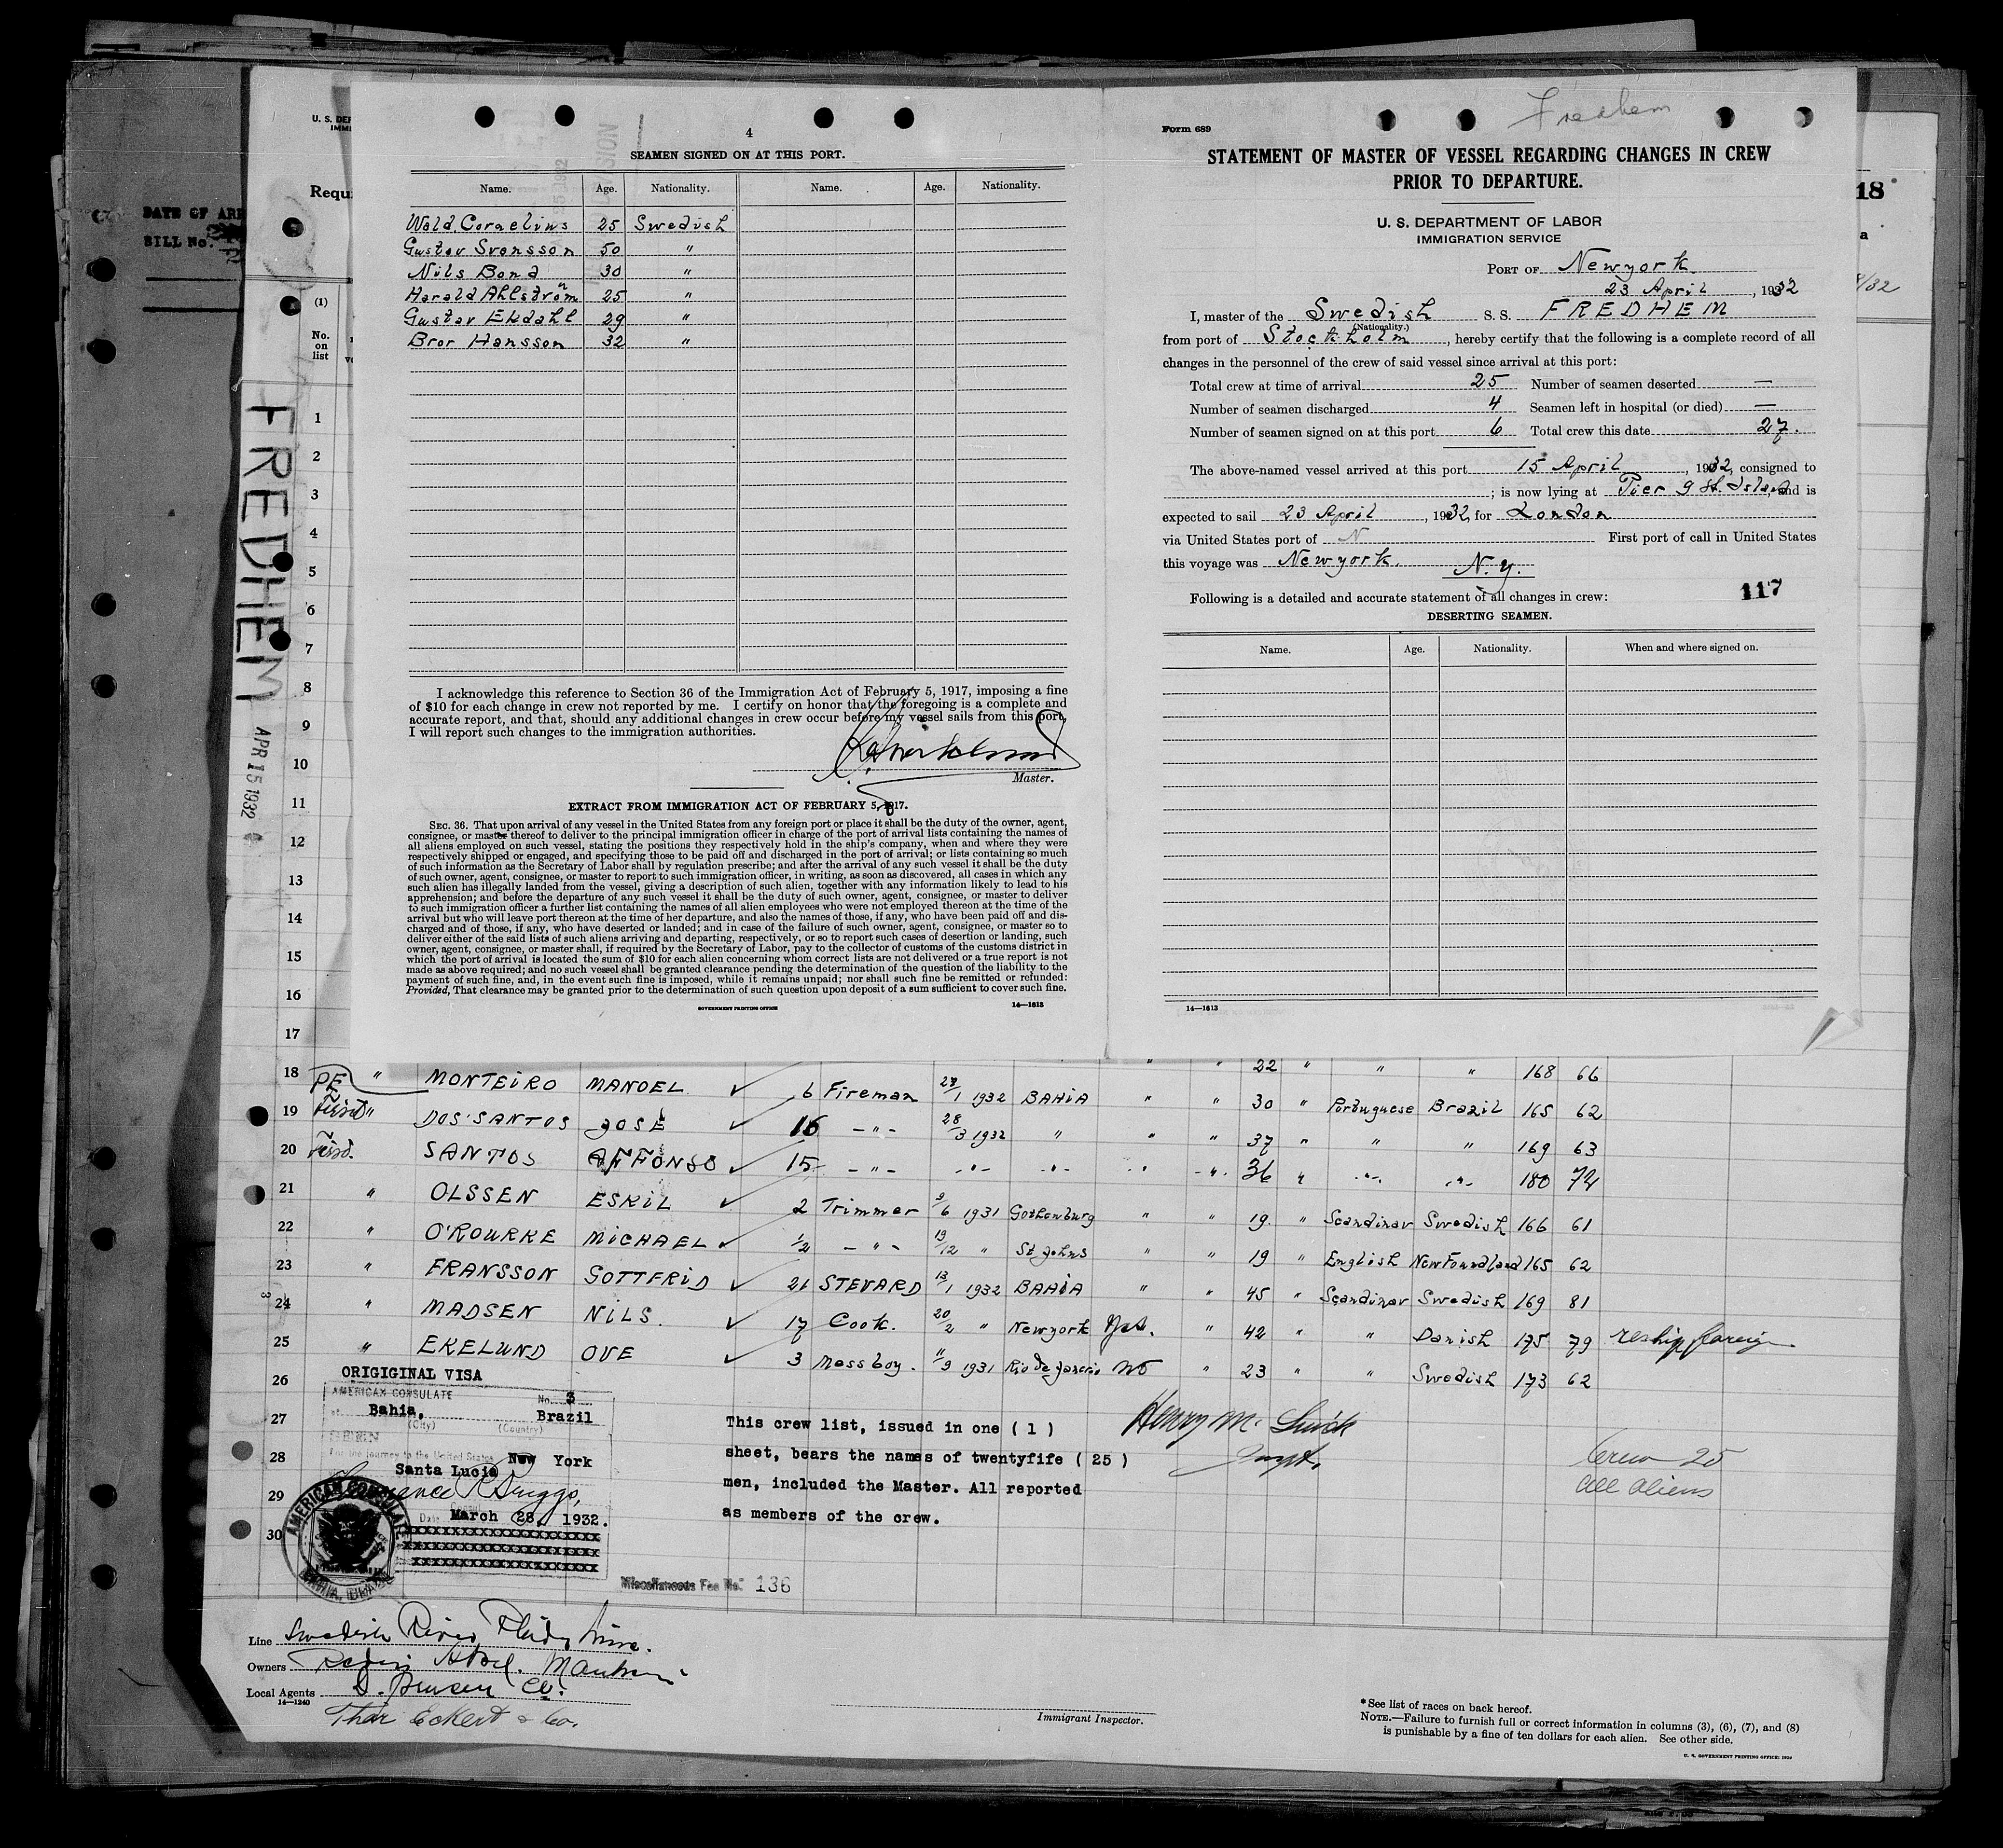 4
SEAMEN SIGNED ON AT THIS PORT.
Name. Age. Nationality. Name. Age. Nationality.
Wald. Cornelius 25 Swedish
Gustav Svensson 50 "
Nils Bond 30 "
Harald Ahlström 25 "
Gustav Ekdahl 29 "
Bror Hansson 32 "
I acknowledge this reference to Section 36 of the Immigration Act of February 5, 1917, imposing a fine
of $10 for each change in crew not reported by me. I certify on honor that the foregoing is a complete and
accurate report, and that, should any additional changes in crew occur before my vessel sails from this port,
I will report such changes to the immigration authorities.
Master.
EXTRACT FROM IMMIGRATION ACT OF FEBRUARY 5, 1917.
SEC. 36. That upon arrival of any vessel in the United States from any foreign port or place it shall be the duty of the owner, agent,
consignee, or master thereof to deliver to the principal immigration officer in charge of the port of arrival lists containing the names of
all aliens employed on such vessel, stating the positions they respectively hold in the ship's company, when and where they were
respectively shipped or engaged, and specifying those to be paid off and discharged in the port of arrival; or lists containing so much
of such information as the Secretary of Labor shall by regulation prescribe; and after the arrival of any such vessel it shall be the duty
of such owner, agent, consignee, or master to report to such immigration officer, in writing, as soon as discovered, all cases in which any
such alien has illegally landed from the vessel, giving a description of such alien, together with any information likely to lead to his
apprehension; and before the departure of any such vessel it shall be the duty of such owner, agent, consignee, or master to deliver
to such immigration officer a further list containing the names of all alien employees who were not employed thereon at the time of the
arrival but who will leave port thereon at the time of her departure, and also the names of those, if any, who have been paid off and dis-
charged and of those, if any, who have deserted or landed; and in case of the failure of such owner, agent, consignee, or master so to
deliver either of the said lists of such aliens arriving and departing, respectively, or so to report such cases of desertion or landing, such
owner, agent, consignee, or master shall, if required by the Secretary of Labor, pay to the collector of customs of the customs district in
which the port of arrival is located the sum of $10 for each alien concerning whom correct lists are not delivered or a true report is not
made as above required; and no such vessel shall be granted clearance pending the determination of the question of the liability to the
payment of such fine, and, in the event such fine is imposed, while it remains unpaid; nor shall such fine be remitted or refunded:
Provided, That clearance may be granted prior to the determination of such question upon deposit of a sum sufficient to cover such fine.
GOVERNMENT PRINTING OFFICE 14—1613
Fredhem
Form 689
STATEMENT OF MASTER OF VESSEL REGARDING CHANGES IN CREW
PRIOR TO DEPARTURE.
U. S. DEPARTMENT OF LABOR
IMMIGRATION SERVICE
PORT OF Newyork
23 April, 1932
I, master of the Swedish S. S. FREDHEM
(Nationality.)
from port of Stockholm, hereby certify that the following is a complete record of all
changes in the personnel of the crew of said vessel since arrival at this port:
Total crew at time of arrival 25 Number of seamen deserted —
Number of seamen discharged 4 Seamen left in hospital (or died) —
Number of seamen signed on at this port 6 Total crew this date 27.
The above-named vessel arrived at this port 15 April, 1932, consigned to
; is now lying at Pier 9 St. Island, and is
expected to sail 23 April, 1932, for London
via United States port of N First port of call in United States
this voyage was Newyork. N.Y.
Following is a detailed and accurate statement of all changes in crew:
117
DESERTING SEAMEN.
Name. Age. Nationality. When and where signed on.
14—1613
DATE OF ARR
BILL No.
U. S. DEP
IMMI
Requi
18
a
/32
(1)
No.
on
list
FREDHEM
APR 15 1932
1
2
3
4
5
6
7
8
9
10
11
12
13
14
15
16
17
18 " " 22 " " " 168 66
PE " MONTEIRO MANOEL ✓ 6 Fireman 27/1 1932 BAHIA " " 30 " Portuguese Brazil 165 62
19 " DOS'SANTOS JOSE ✓ 16 —"— 28/3 1932 " " " 37 " " " 169 63
20 SANTOS AFFONSO ✓ 15 —"— -"- -"- " -"- 36 " -"- -"- 180 72
21 " OLSSEN ESKIL ✓ 2 Trimmer 9/6 1931 Gothenburg " " 19 " Scandinav Swedish 166 61
22 " O'ROURKE MICHAEL ✓ 1/2 —"— 19/12 " St Johns " " 19 " English NewFoundland 165 62
23 " FRANSSON GOTTFRID ✓ 26 STEVARD 13/1 1932 BAHIA " " 45 " Scandinav Swedish 169 81
24 " MADSEN NILS. ✓ 17 Cook. 20/2 " Newyork Yes. " 42 " " Danish 175 79 reship foreign
25 " EKELUND OVE ✓ 3 Messboy. 11/9 1931 Rio de Janerio No " 23 " " Swedish 173 62
26
27
28
29
30
ORIGIGINAL VISA
AMERICAN CONSULATE No. 3
at Bahia, Brazil
(City) (Country)
SEEN
For the journey to the United States
New York
Santa Lucia
Consul
Date March 28, 1932.
AMERICAN CONSULATE
BAHIA, BRAZIL
Miscellaneous Fee No. 136
This crew list, issued in one ( 1 )
sheet, bears the names of twentyfife ( 25 )
men, included the Master. All reported
as members of the crew.
Crew 25
all aliens
Line Swedish
Owners
Local Agents
14—1240
Thor Eckert & Co.
Immigrant Inspector.
*See list of races on back hereof.
NOTE.—Failure to furnish full or correct information in columns (3), (6), (7), and (8)
is punishable by a fine of ten dollars for each alien. See other side.